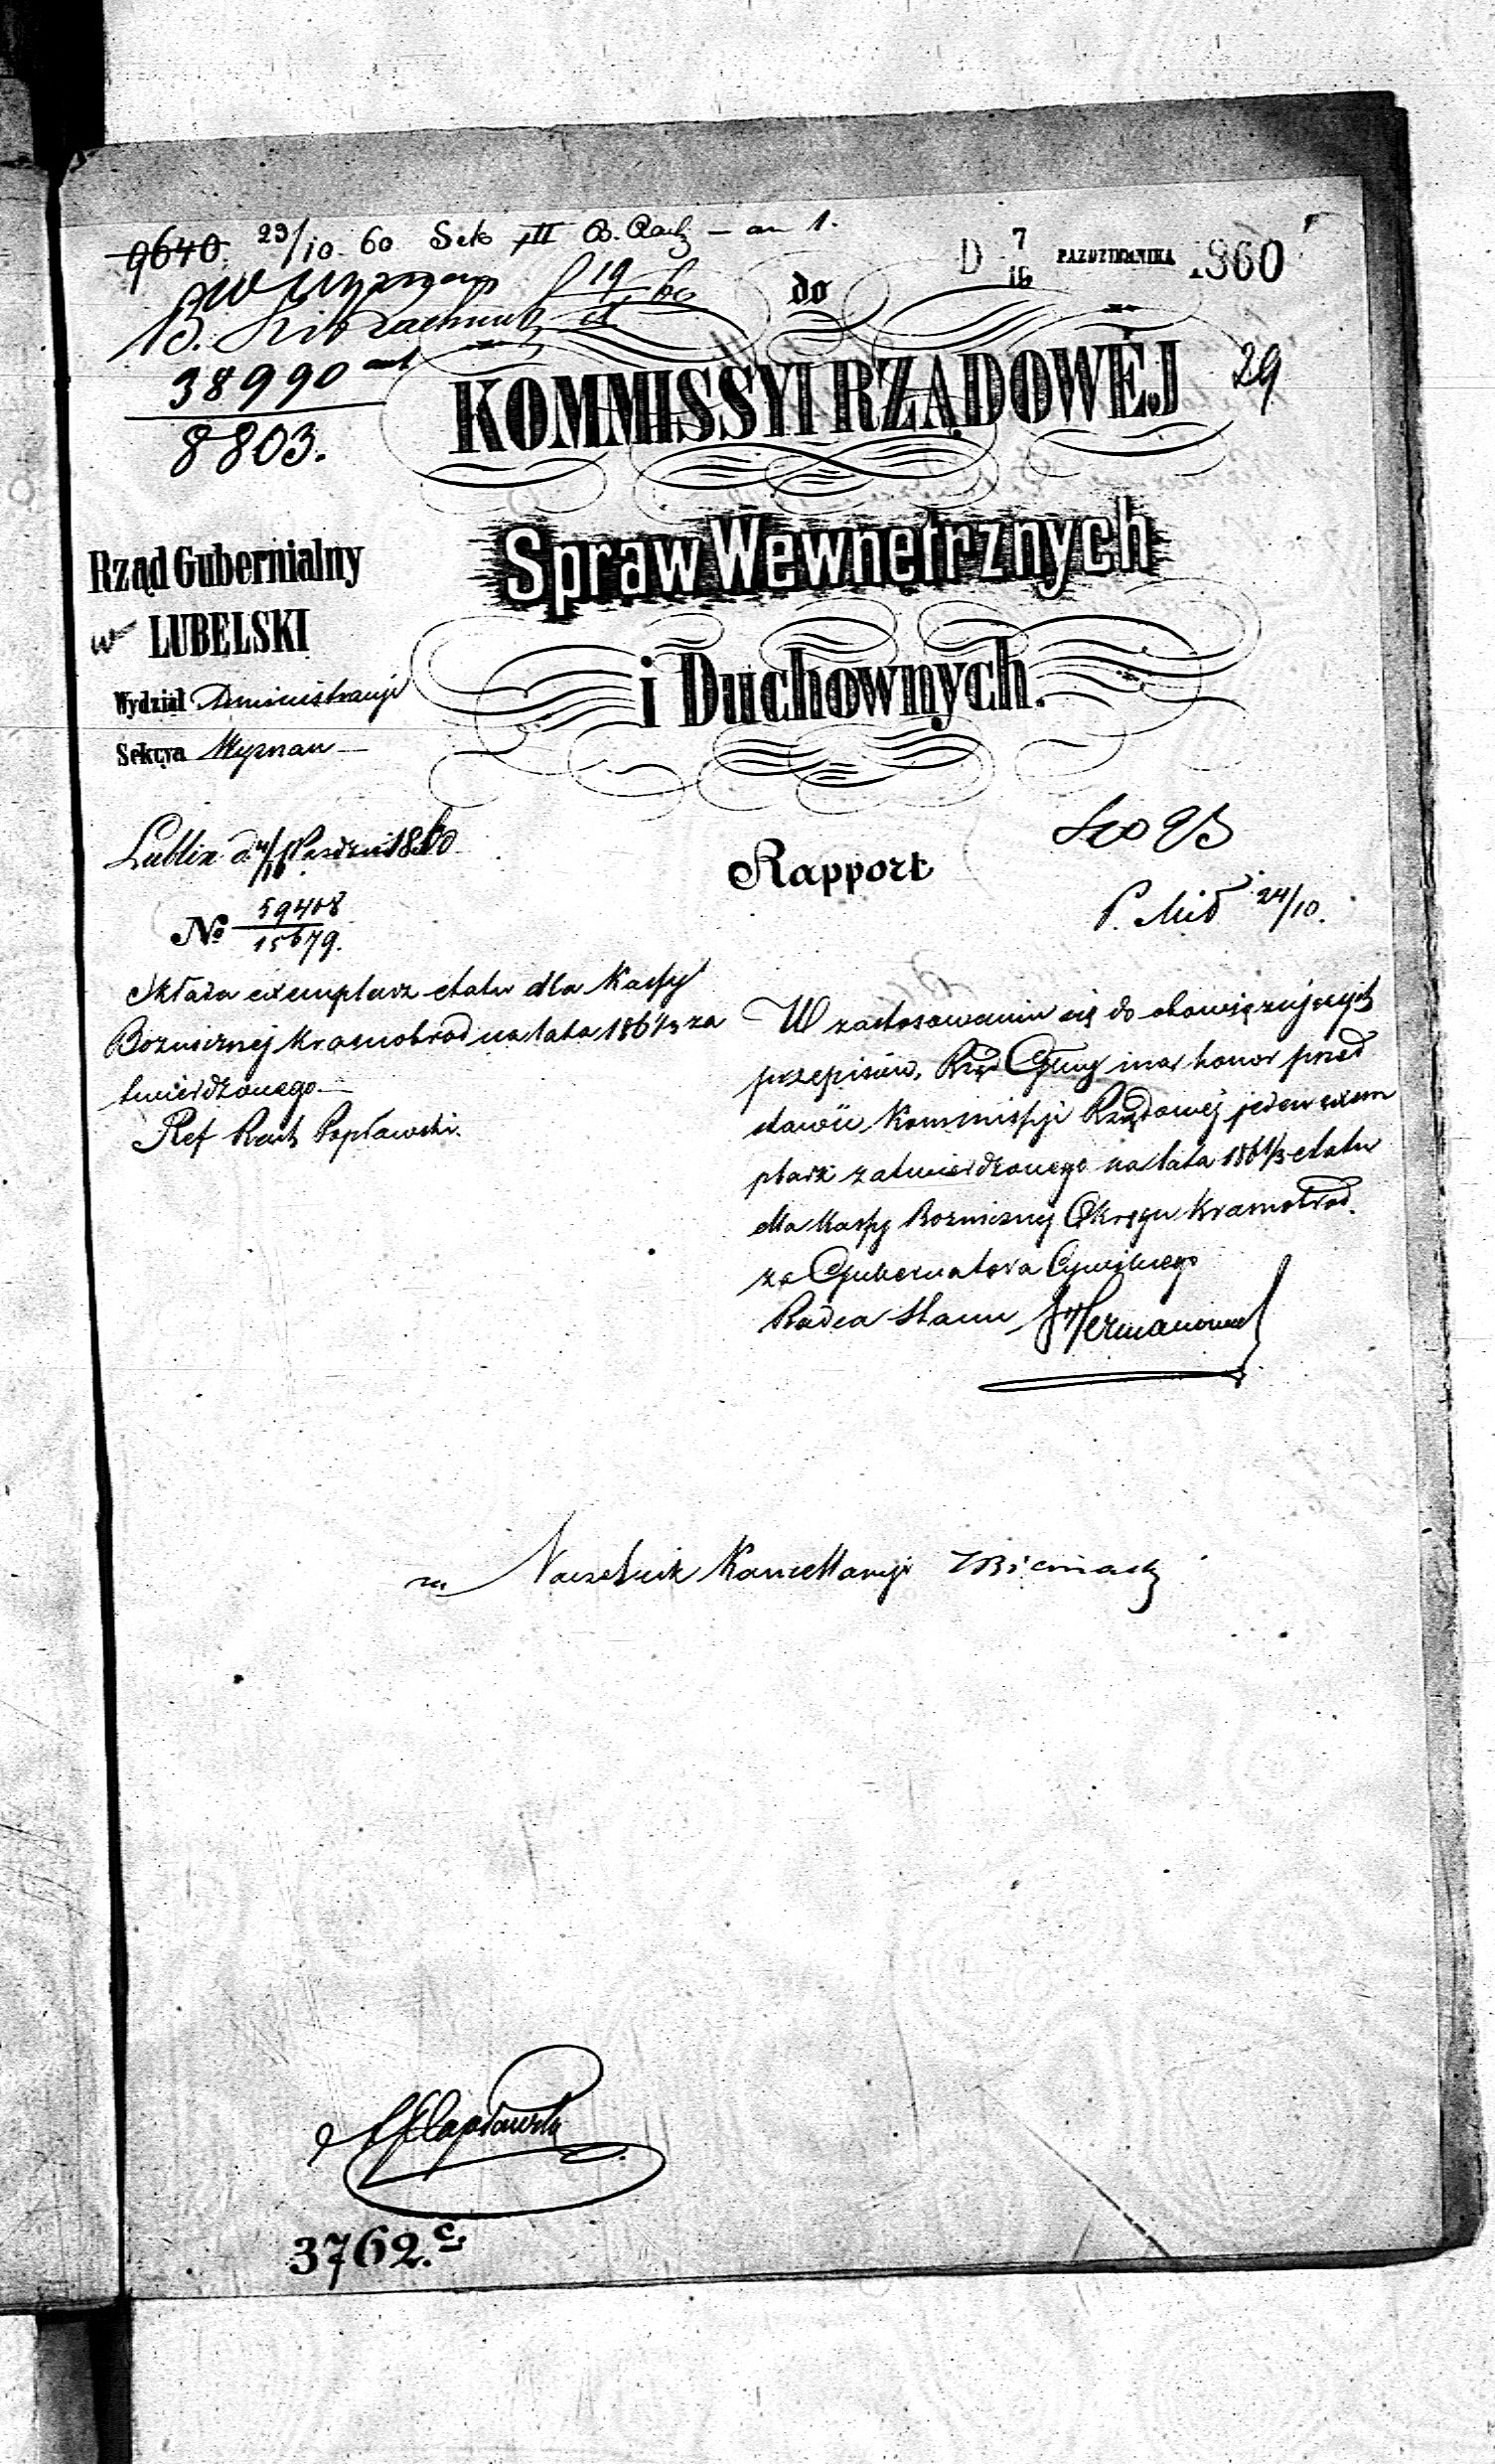 9640. 23/10 60 Sek III B. Rach – an 1.
D 7/19 PAZDZIERNIKA 1860
W Wyznan 19/X 60
do
38990
8803.
29
KOMMISSYI RZĄDOWÉJ
Spraw Wewnętrznych
i Duchownych.
Rząd Gubernialny
w LUBELSKI
Wydział Administracyi
Sekcya Wyznan
Lublin d. 4/16 Pazdzier 1860
Rapport
P. Mid 24/10.
No 59408
15679.
Składa exemplarz etatu dla Kassy
Boznicznej Krasnobrod na lata 1861/3 za
twierdzonego
Ref Rach Popławski.
W zastosowaniu się do obowięzujących
przepisów, Rząd Gbny ma honor przed
stawić Kommissyi Rządowéj jeden exem
plarz zatwierdzonego na lata 1861/3 etatu
dla Kassy Bozniczny Okręgu Krasnobrod.
za Gubernatora Cywilnego
Radca Stanu
za Naczelnik Kancellaryi
Popławski
3762.c.